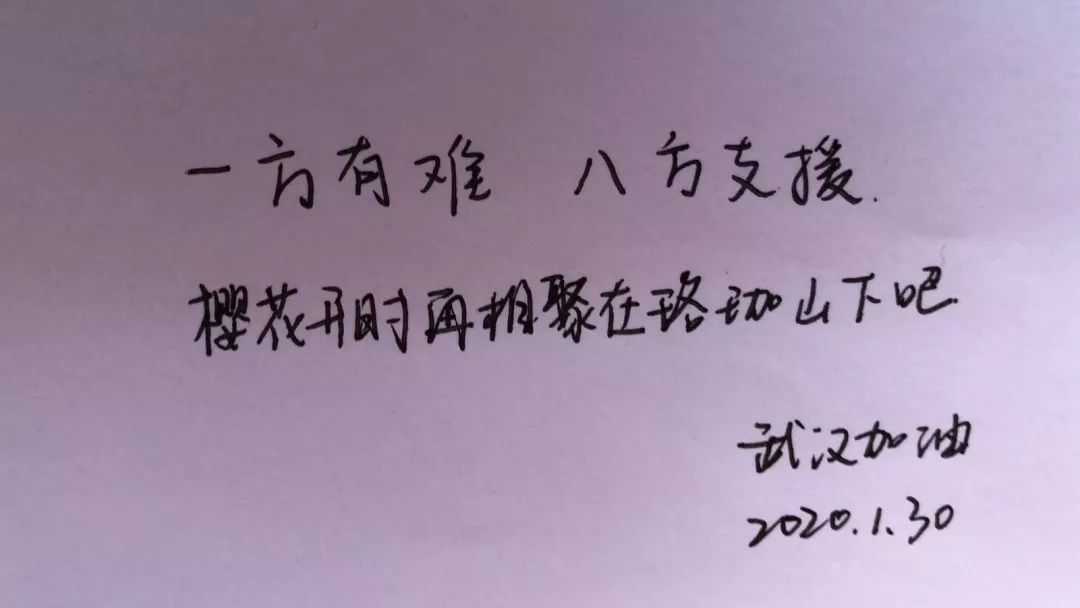 一方有难 八方支援.
樱花开时再相聚在珞珈山下吧
武汉加油
2020.1.30